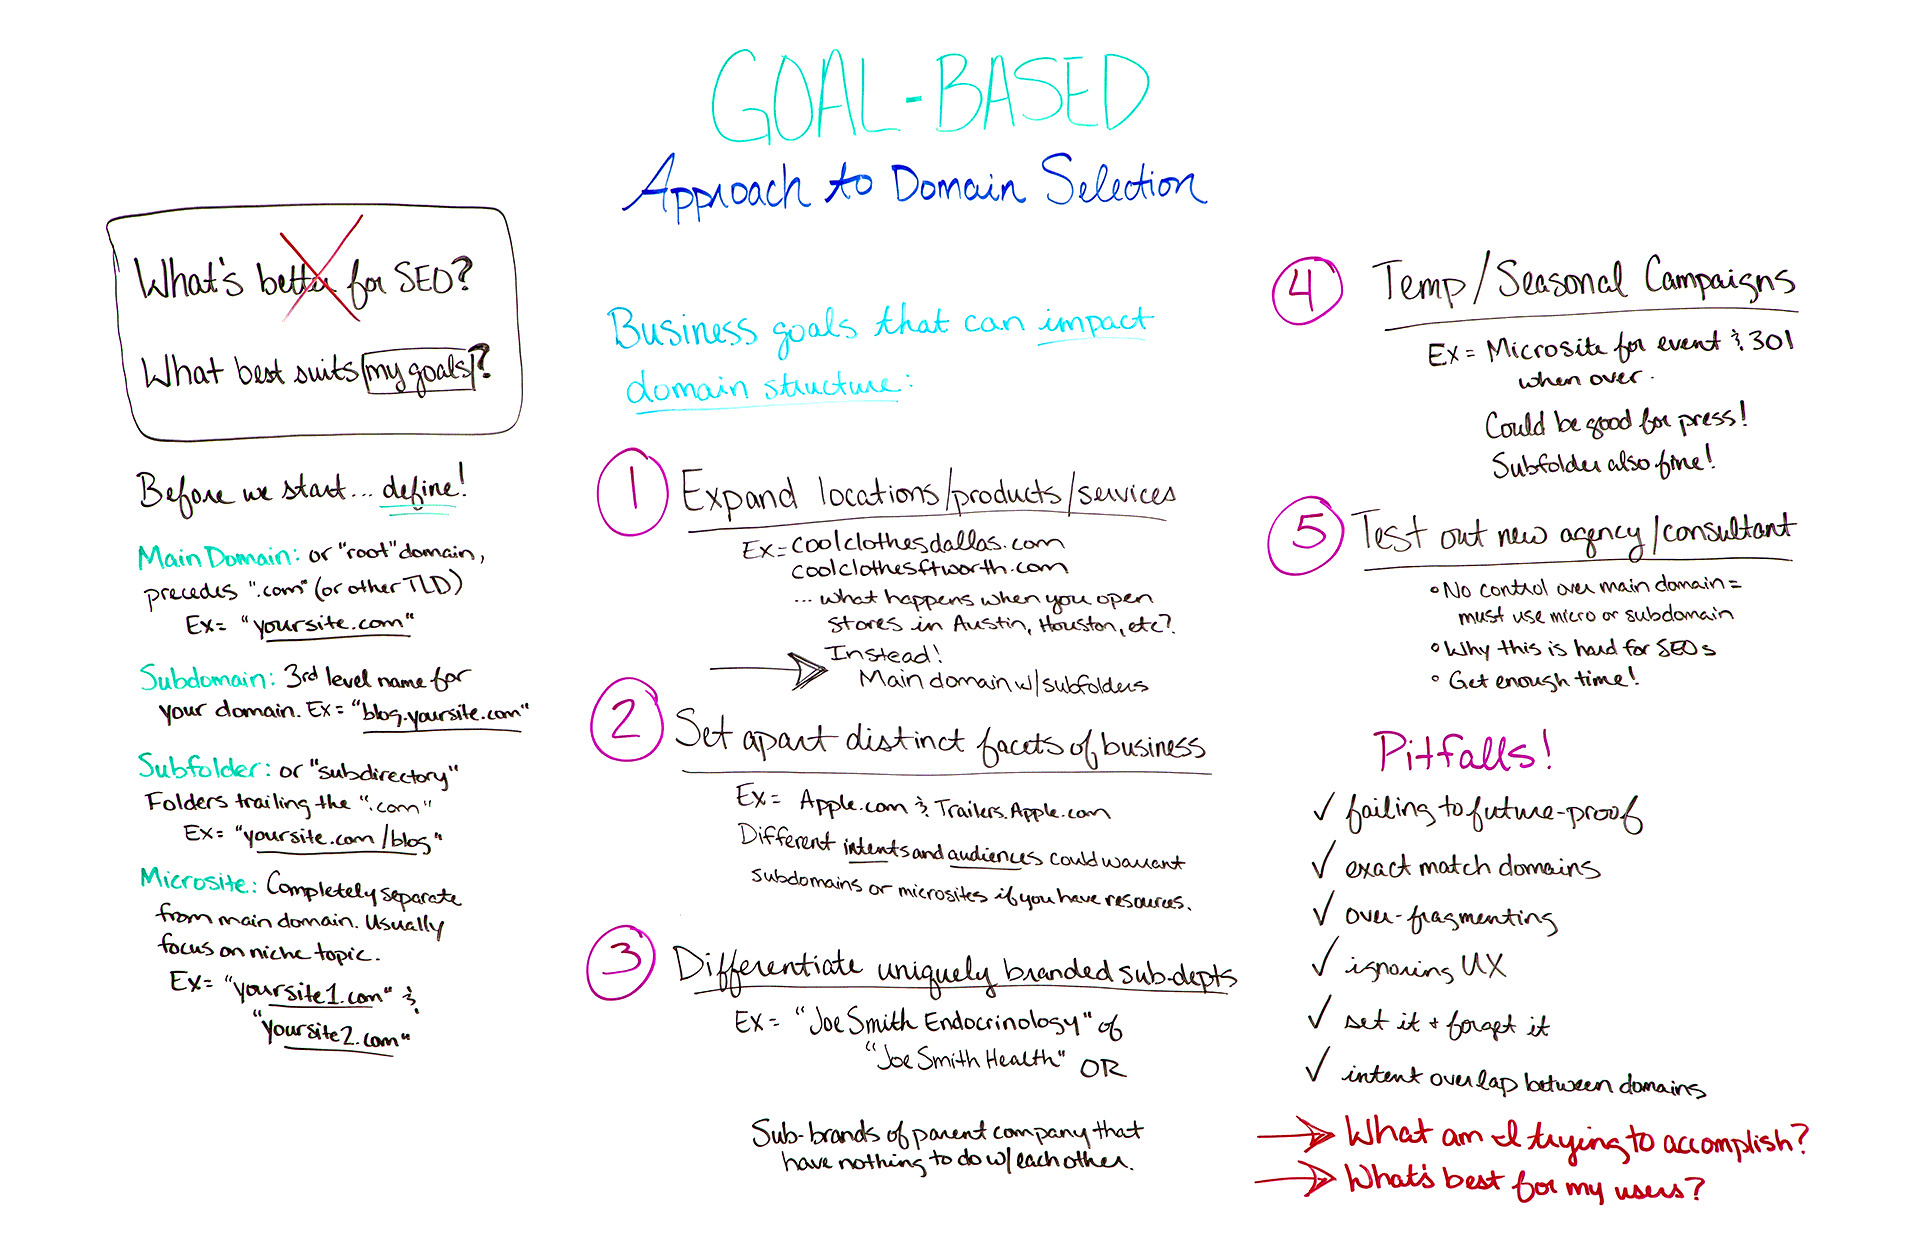 GOAL-BASED
Approach to Domain Selection
What's better for SEO?
What best suits my goals?
Before we start... define!
Main Domain: or "root" domain,
precedes ".com" (or other TLD)
Ex= "yoursite.com"
Subdomain: 3rd level name for
your domain. Ex= "blog.yoursite.com"
Subfolder: or "subdirectory"
Folders trailing the ".com"
Ex= "yoursite.com/blog"
Microsite: Completely separate
from main domain. Usually
focus on niche topic.
Ex= "yoursite1.com" &
"yoursite2.com"
Business goals that can impact
domain structure:
1 Expand locations/products/services
Ex= coolclothesdallas.com
coolclothesftworth.com
... what happens when you open
stores in Austin, Houston, etc?
Instead!
Main domain w/subfolders
2 Set apart distinct facets of business
Ex= Apple.com & Trailers.Apple.com
Different intents and audiences could warrant
subdomains or microsites if you have resources.
3 Differentiate uniquely branded sub-depts
Ex= "Joe Smith Endocrinology" of
"Joe Smith Health" OR
Sub-brands of parent company that
have nothing to do w/each other.
4 Temp/Seasonal Campaigns
Ex= Microsite for event & 301
when over.
Could be good for press!
Subfolder also fine!
5 Test out new agency/consultant
• No control over main domain =
must use micro or subdomain
• Why this is hard for SEOs
• Get enough time!
Pitfalls!
✓ failing to future-proof
✓ exact match domains
✓ over-fragmenting
✓ ignoring UX
✓ set it + forget it
✓ intent overlap between domains
What am I trying to accomplish?
What's best for my users?